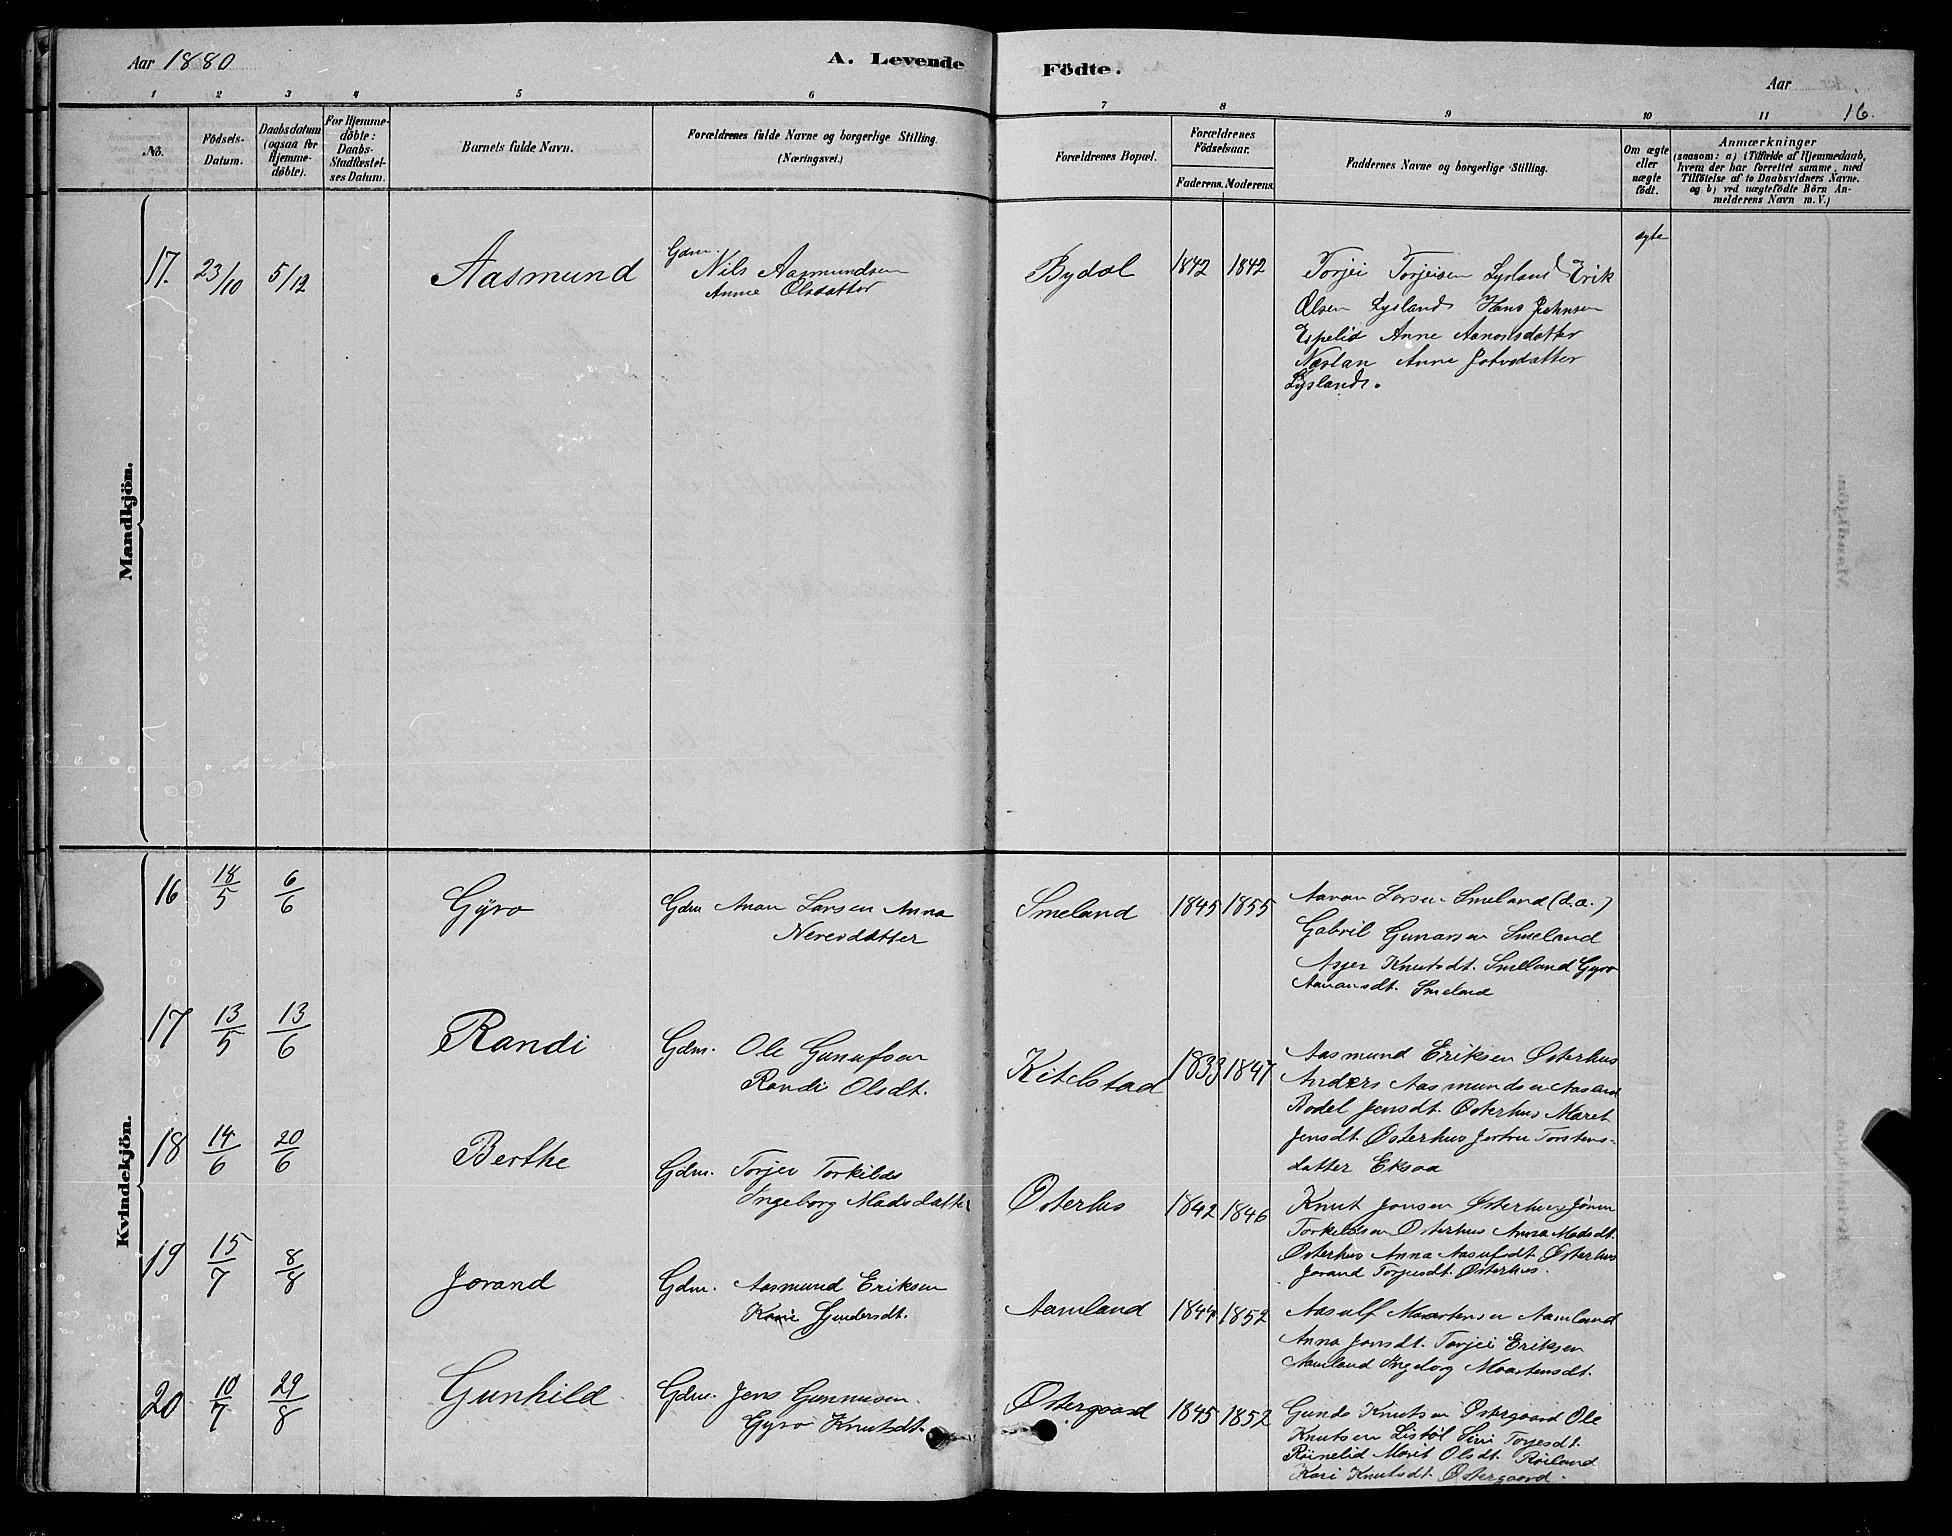 Aar 1880
A. Levende Födte.
Aar
16.
1 2 3 4 5 6 7 8 9 10 11
No.
Födsels-Datum.
Daabsdatum (ogsaa for Hjemme-döbte).
For Hjemme-döbte: Daabs-Stadfæstel-ses Datum.
Barnets fulde Navn.
Forældrenes fulde Navne og borgerlige Stilling. (Næringsvei.)
Forældrenes Bopæl.
Forældrenes Födselsaar.
Faderens. Moderens.
Faddernes Navne og borgerlige Stilling.
Om ægte eller uægte födt.
Anmærkninger
(saasom: a) i Tilfælde af Hjemmedaab,
hvem der har forrettet samme, med
Tilföielse af to Daabsvidners Navne.
og b) ved uægtefödte Börn An-
melderens Navn m. V.)
Mandkjön.
17. 23/10 5/12 Aasmund
Gdm.
Nils Aasmundsen
Anne Olsdatter
Bydal 1842 1842
Torjei Torjeisen Lysland Erik
Olsen Lysland Hans Johnsen
Espelid Anne Aanonsdatter
Anne
Lysland.
ægte
Kvindekjön.
16 18/5 6/6 Gyro
Gdm Anan Larsen Anna
Nerisdatter
Smeland 1845 1855
Aanan Larsen Smeland (d.a.)
Gabril Gunarsen Smeland
Knutsdt. Smeland Gyro
Aanansdt. Smeland
17 13/5 13/6 Randi
Gdm. Ole
Randi Olsdt.
Kitelstad 1833 1847
Aasmund Eriksen Østerhus
Anders Aasmundsen Aasland
Bodel Jensdt. Østerhus Maret
Jensdt. Østerhus Torstens-
datter Eksaa
18 14/6 20/6 Berthe
Gdm. Torjei Torkilds
Ingeborg Madsdatter
Østerhus 1842 1846
Knut Jonsen Østerhus
Torkildsen Østerhus Anna Madsdt.
Østerhus Anna Aasufsdt. Østerhus
Jorand Torjusdt. Østerhus.
19 15/7 8/8 Jorand
Gdm. Aasmund Eriksen
Kari
Aamland 1844 1852
Aasulf Maartensen Aamland
Anna Jonsdt. Torjei Eriksen
Aamland Ingeborg Maartensdt.
20 10/7 29/8 Gunhild
Gdm. Jens Gunnusen
Gyro Knutsdt.
Østergaard 1845 1852
Knutsen Østergaard Ole
Knutsen Listöl Siri
Marit Olsdt. Röiland
Kari Knutsdt. Østergaard.